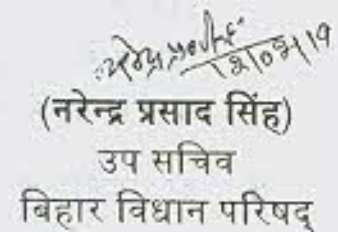 (नरेन्द्र प्रसाद सिंह)
उप सचिव
बिहार विधान परिषद्